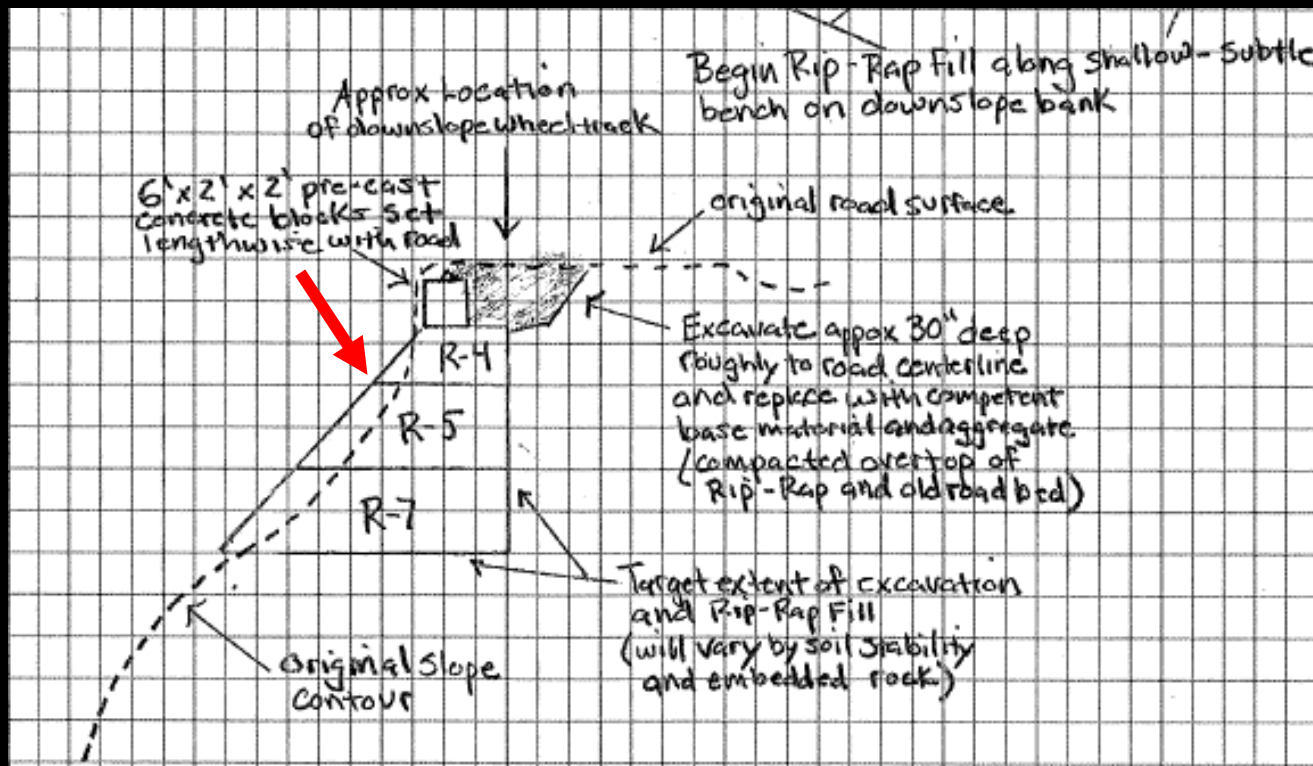 Begin Rip-Rap Fill along shallow-subtle
bench on downslope bank
Approx Location
of downslope wheeltrack
6' x 2' x 2' pre-cast
concrete blocks set
lengthwise with road
original road surface
R-4
R-5
R-7
Excavate appox 30" deep
roughly to road centerline
and replace with competent
base material and aggregate
(compacted overtop of
Rip-Rap and old road bed)
Target extent of excavation
and Rip-Rap Fill
(will vary by soil stability
and embedded rock)
Original Slope
Contour